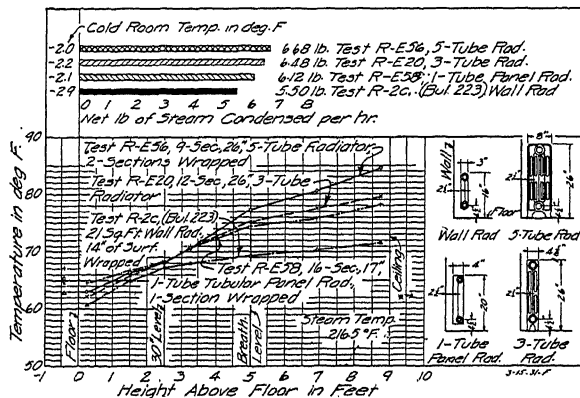 Cold Room Temp. in deg. F
-2.0 6.68 lb. Test R-E56, 5-Tube Rad.
-2.2 6.48 lb. Test R-E20, 3-Tube Rad.
-2.1 6.12 lb. Test R-E58, 1-Tube Panel Rad.
-2.9 5.50 lb. Test R-2c, (Bul. 223) Wall Rad
0 1 2 3 4 5 6 7 8
Net lb of Steam Condensed per hr.
90
80
70
60
50
Temperature in deg F.
Test R-E56, 9-Sec, 26", 5-Tube Radiator,
2-Sections Wrapped
Test R-E20, 12-Sec, 26", 3-Tube
Radiator
Test R-2c, (Bul. 223)
21 Sq Ft Wall Rad.
14" of Surf.
Wrapped
Test R-E58, 16-Sec, 17",
1-Tube Tubular Panel Rad.
1-Section Wrapped
Steam Temp.
216.5 °F.
Floor
30" Level
Breath. Level
Ceiling
-1 0 1 2 3 4 5 6 7 8 9 10
Height Above Floor in Feet
Wall
3"
2½"
16"
4½"
Floor
Wall Rad
8"
2½"
26"
4½"
5-Tube Rad.
4"
2½"
20"
4½"
1-Tube
Panel Rad.
2½"
26"
4½"
3-Tube
Rad.
3-15-31-F